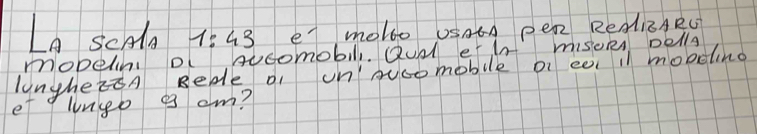 La scala 1:43 e' molto usata per realizzare
modelini di automobili. Qual e' la misura della
lunghezza reale di un' automobile di cui il modelino
e' lungo 9 cm?